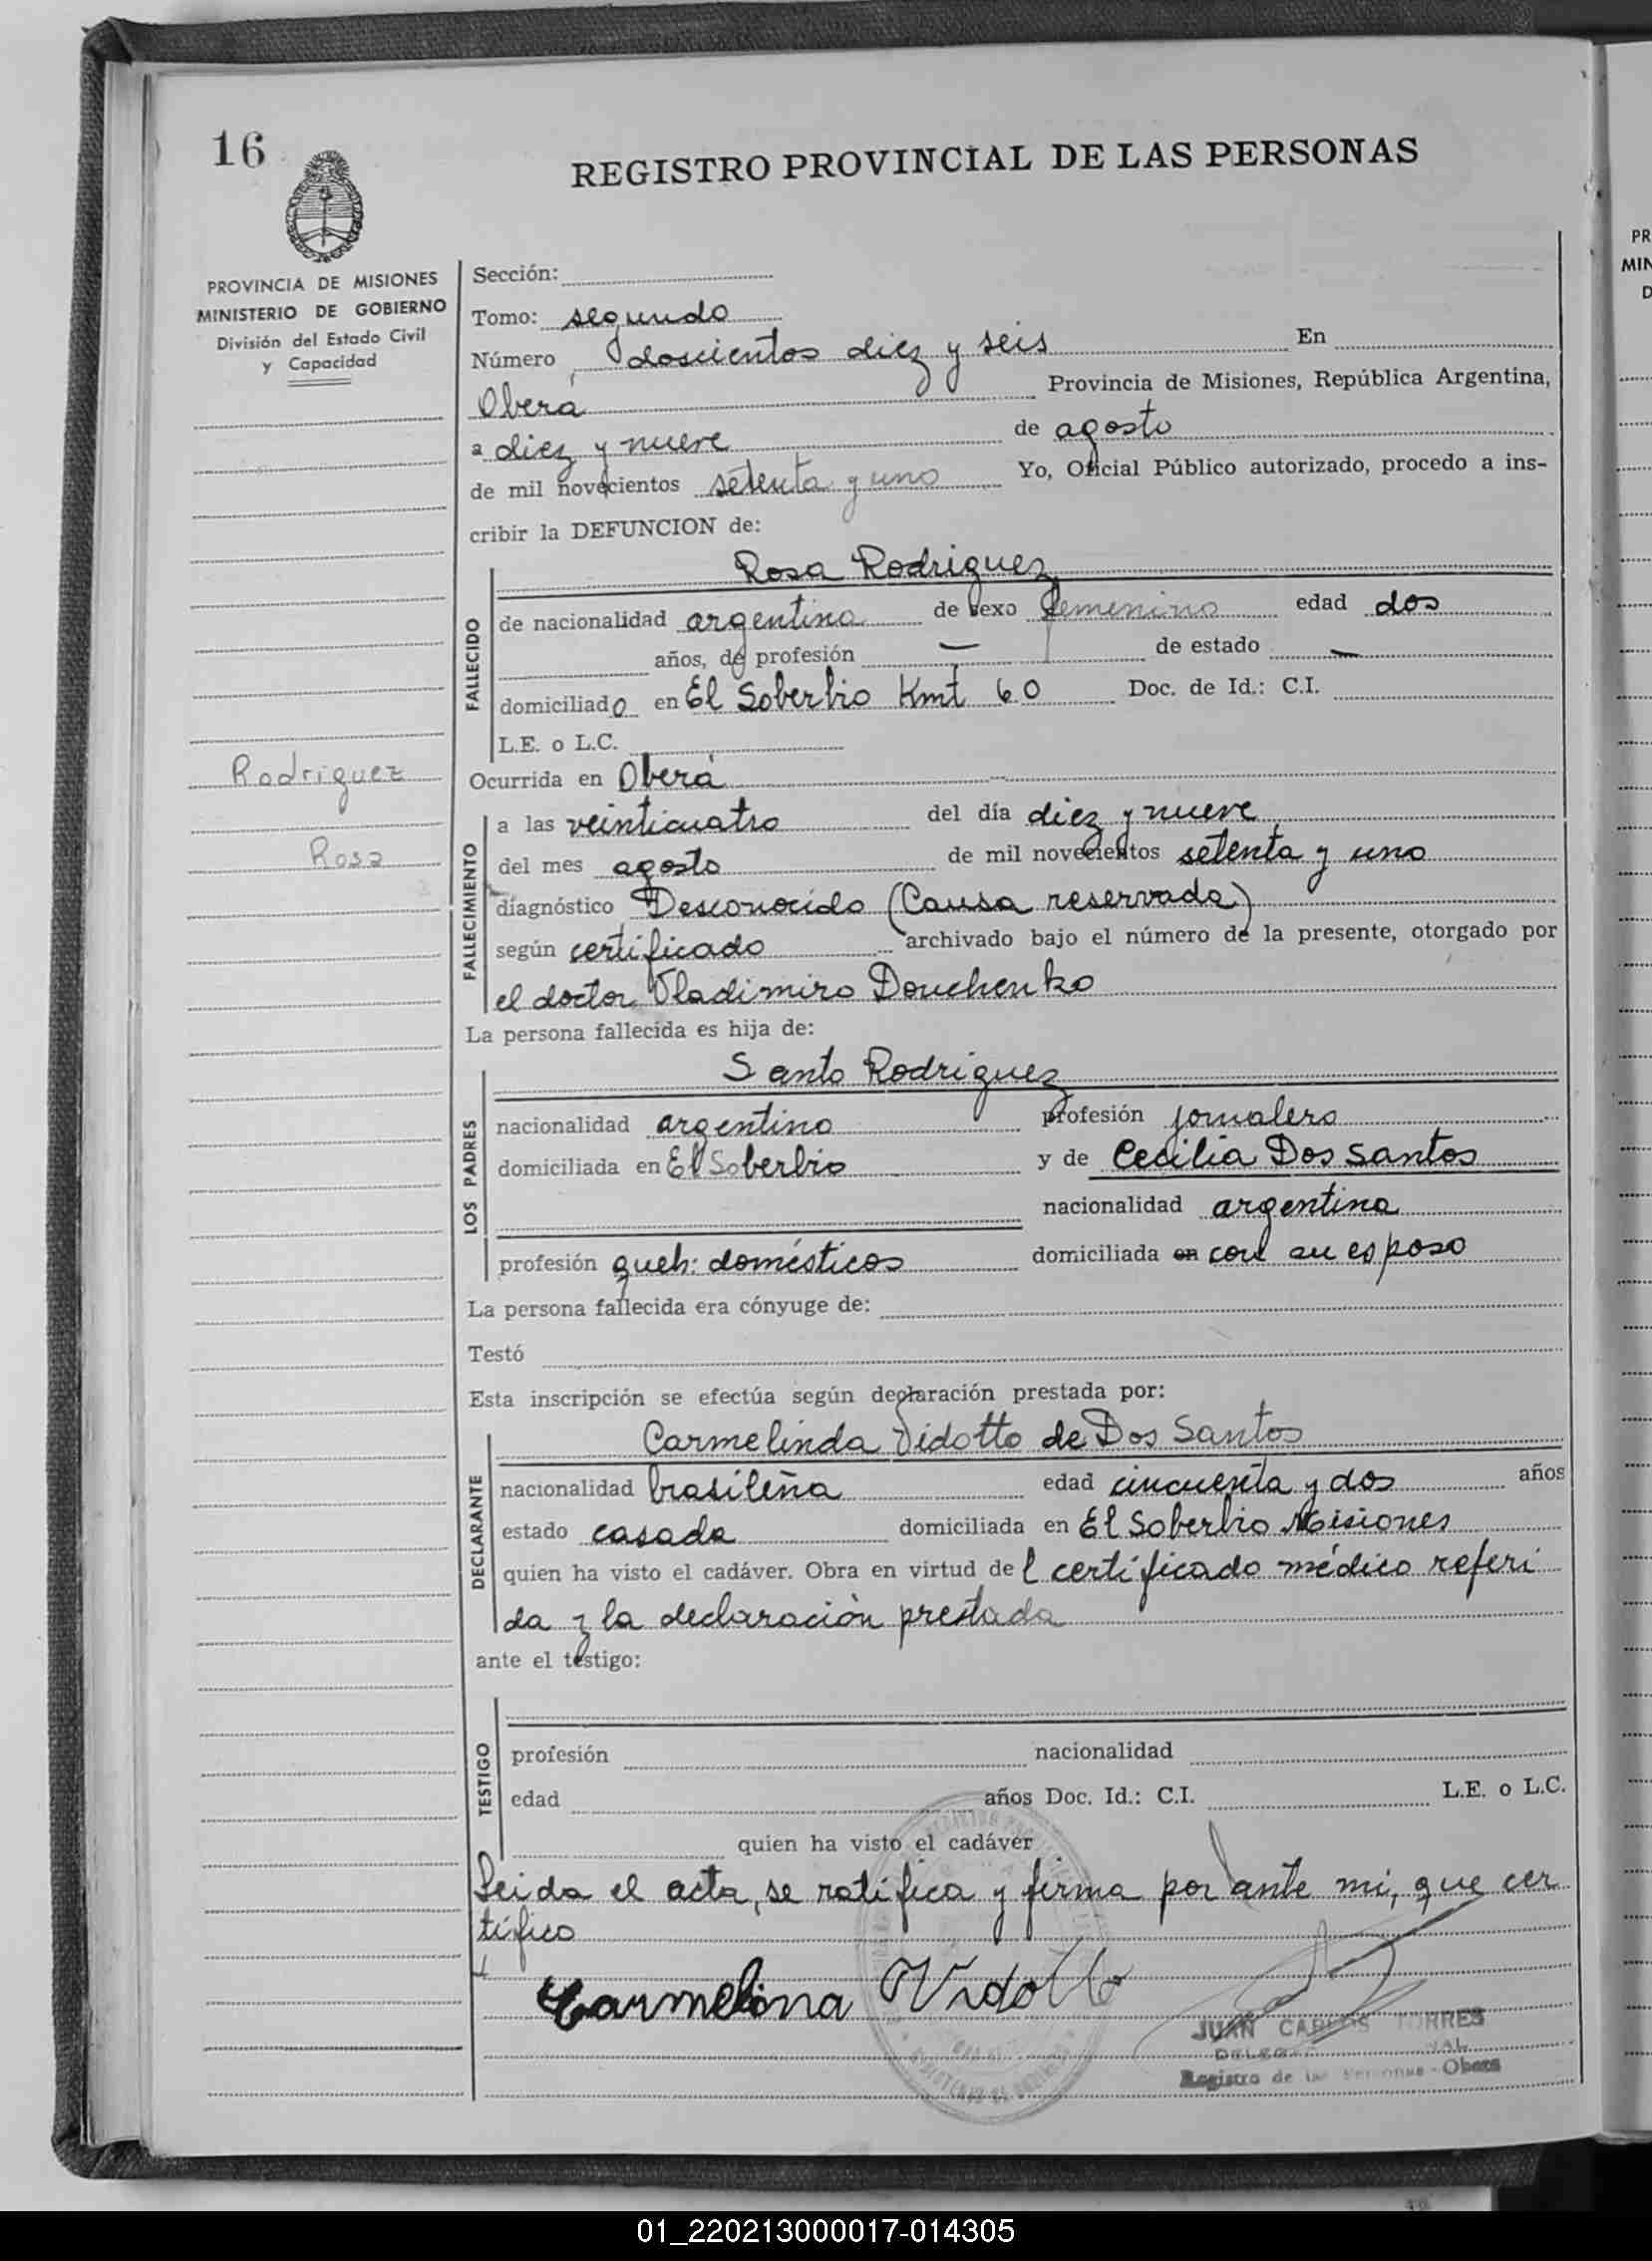 16
REGISTRO PROVINCIAL DE LAS PERSONAS
PROVINCIA DE MISIONES
MINISTERIO DE GOBIERNO
División del Estado Civil
y Capacidad
Rodriguez
Rosa
Sección:
Tomo: segundo
Número doscientos diez y seis En
Oberá Provincia de Misiones, República Argentina,
a diez y nueve de agosto
de mil novecientos setenta y uno Yo, Oficial Público autorizado, procedo a ins-
cribir la DEFUNCION de:
Rosa Rodriguez
FALLECIDO
de nacionalidad argentina de sexo femenino edad dos
años, de profesión — de estado —
domiciliado en El Soberbio Kmt 60 Doc. de Id.: C.I.
L.E. o L.C.
Ocurrida en Oberá
FALLECIMIENTO
a las veinticuatro del día diez y nueve
del mes agosto de mil novecientos setenta y uno
diagnóstico Desconocido (Causa reservada)
según certificado archivado bajo el número de la presente, otorgado por
el doctor Vladimiro Douchenko
La persona fallecida es hija de:
Santo Rodriguez
LOS PADRES
nacionalidad argentino profesión jornalero
domiciliada en El Soberbio y de Cecilia Dos Santos
nacionalidad argentina
profesión queh: domésticos domiciliada en con su esposo
La persona fallecida era cónyuge de:
Testó
Esta inscripción se efectúa según declaración prestada por:
Carmelinda Vidotto de Dos Santos
DECLARANTE
nacionalidad brasileña edad cincuenta y dos años
estado casada domiciliada en El Soberbio Misiones
quien ha visto el cadáver. Obra en virtud del certificado médico referi
da y la declaración prestada
ante el testigo:
TESTIGO
profesión nacionalidad
edad años Doc. Id.: C.I. L.E. o L.C.
quien ha visto el cadáver
Leida el acta, se ratifica y firma por ante mi, que cer
tifico
Carmelina Vidotto
JUAN CARLOS TORRES
Registro de las Personas - Oberá
PR
MIN
D
01_220213000017-014305